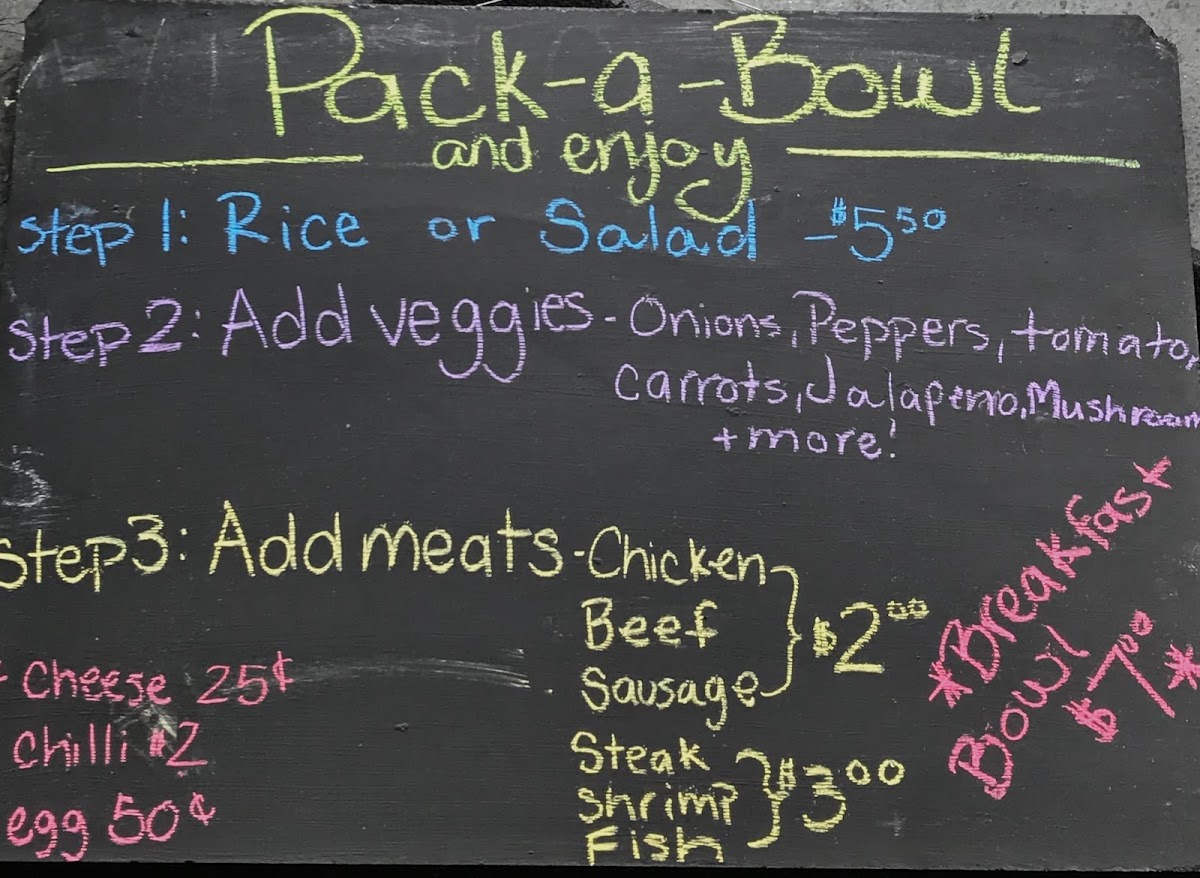 Pack-a-Bowl
and enjoy
Step 1: Rice or Salad - $5 50
Step 2: Add veggies - Onions, Peppers, tomato,
Carrots, Jalapeno, Mushroom
+ more!
Step 3: Add meats - Chicken
Beef
Sausage
$2 00
Steak
Shrimp
Fish
$3 00
Cheese 25¢
Chilli $2
egg 50¢
*Breakfast
Bowl
$7 00*